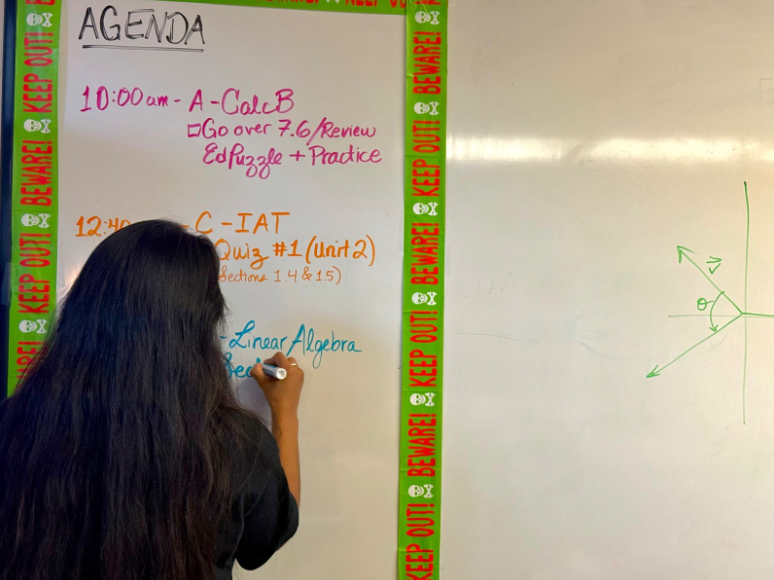 AGENDA
10:00am - A - Calc B
Go over 7.6/Review
EdPuzzle + Practice
C - IAT
Quiz #1 (Unit 2)
Sections 1.4 & 1.5)
- Linear Algebra
KEEP OUT! BEWARE! KEEP OUT! BEWARE! KEEP OUT!
BEWARE! KEEP OUT! BEWARE! KEEP OUT! BEWARE! KEEP OUT!
v
θ